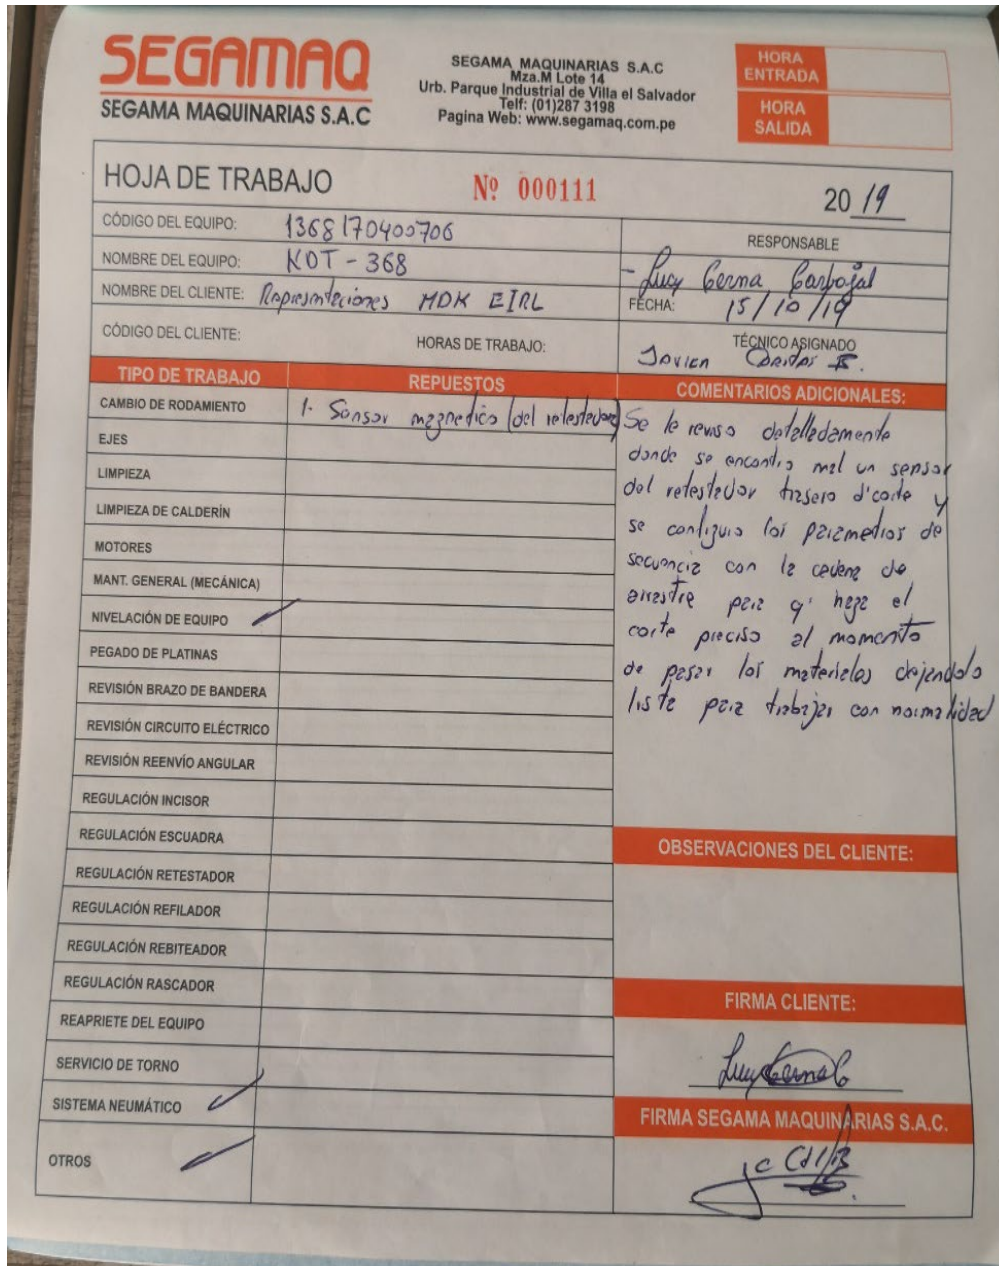 SEGAMAQ
SEGAMA MAQUINARIAS S.A.C
SEGAMA MAQUINARIAS S.A.C
Mza.M Lote 14
Urb. Parque Industrial de Villa el Salvador
Telf: (01)287 3198
Pagina Web: www.segamaq.com.pe
HORA ENTRADA
HORA SALIDA
HOJA DE TRABAJO
Nº 000111
2019
CÓDIGO DEL EQUIPO: 1368170400706
NOMBRE DEL EQUIPO: KDT-368
NOMBRE DEL CLIENTE: Representaciones MDK EIRL
CÓDIGO DEL CLIENTE:
HORAS DE TRABAJO:
RESPONSABLE
- Lucy Cerna Carbajal
FECHA: 15/10/19
TÉCNICO ASIGNADO
Javier
TIPO DE TRABAJO
REPUESTOS
COMENTARIOS ADICIONALES:
CAMBIO DE RODAMIENTO
1- Sensor magnetico (del retestador)
EJES
LIMPIEZA
LIMPIEZA DE CALDERÍN
MOTORES
MANT. GENERAL (MECÁNICA)
NIVELACIÓN DE EQUIPO
PEGADO DE PLATINAS
REVISIÓN BRAZO DE BANDERA
REVISIÓN CIRCUITO ELÉCTRICO
REVISIÓN REENVÍO ANGULAR
REGULACIÓN INCISOR
REGULACIÓN ESCUADRA
REGULACIÓN RETESTADOR
REGULACIÓN REFILADOR
REGULACIÓN REBITEADOR
REGULACIÓN RASCADOR
REAPRIETE DEL EQUIPO
SERVICIO DE TORNO
SISTEMA NEUMÁTICO
OTROS
Se le reviso detalladamente
donde se encontro mal un sensor
del retestador trasero d'corte y
se configuro los parametros de
secuencia con la cadena de
arrastre para q' haga el
corte preciso al momento
de pasar los materiales dejandola
lista para trabajar con normalidad
OBSERVACIONES DEL CLIENTE:
FIRMA CLIENTE:
Lucy Cerna C
FIRMA SEGAMA MAQUINARIAS S.A.C.